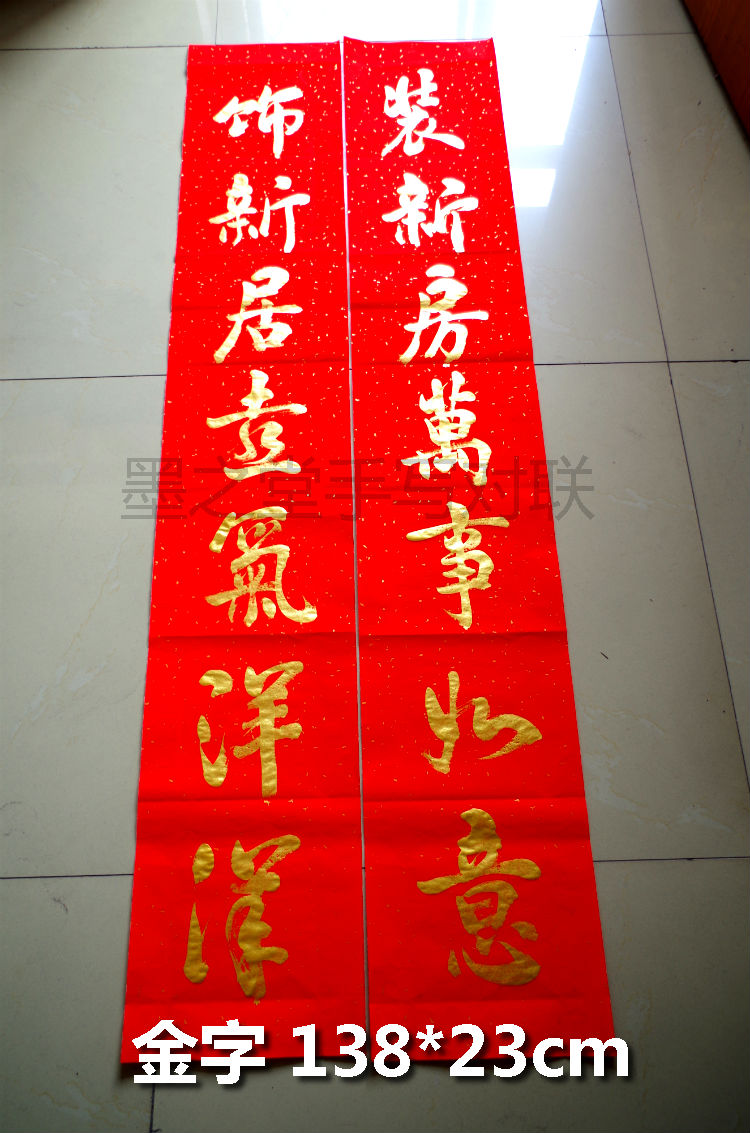 装新房萬事如意
饰新居喜氣洋洋
墨之堂手写对联
金字 138*23cm